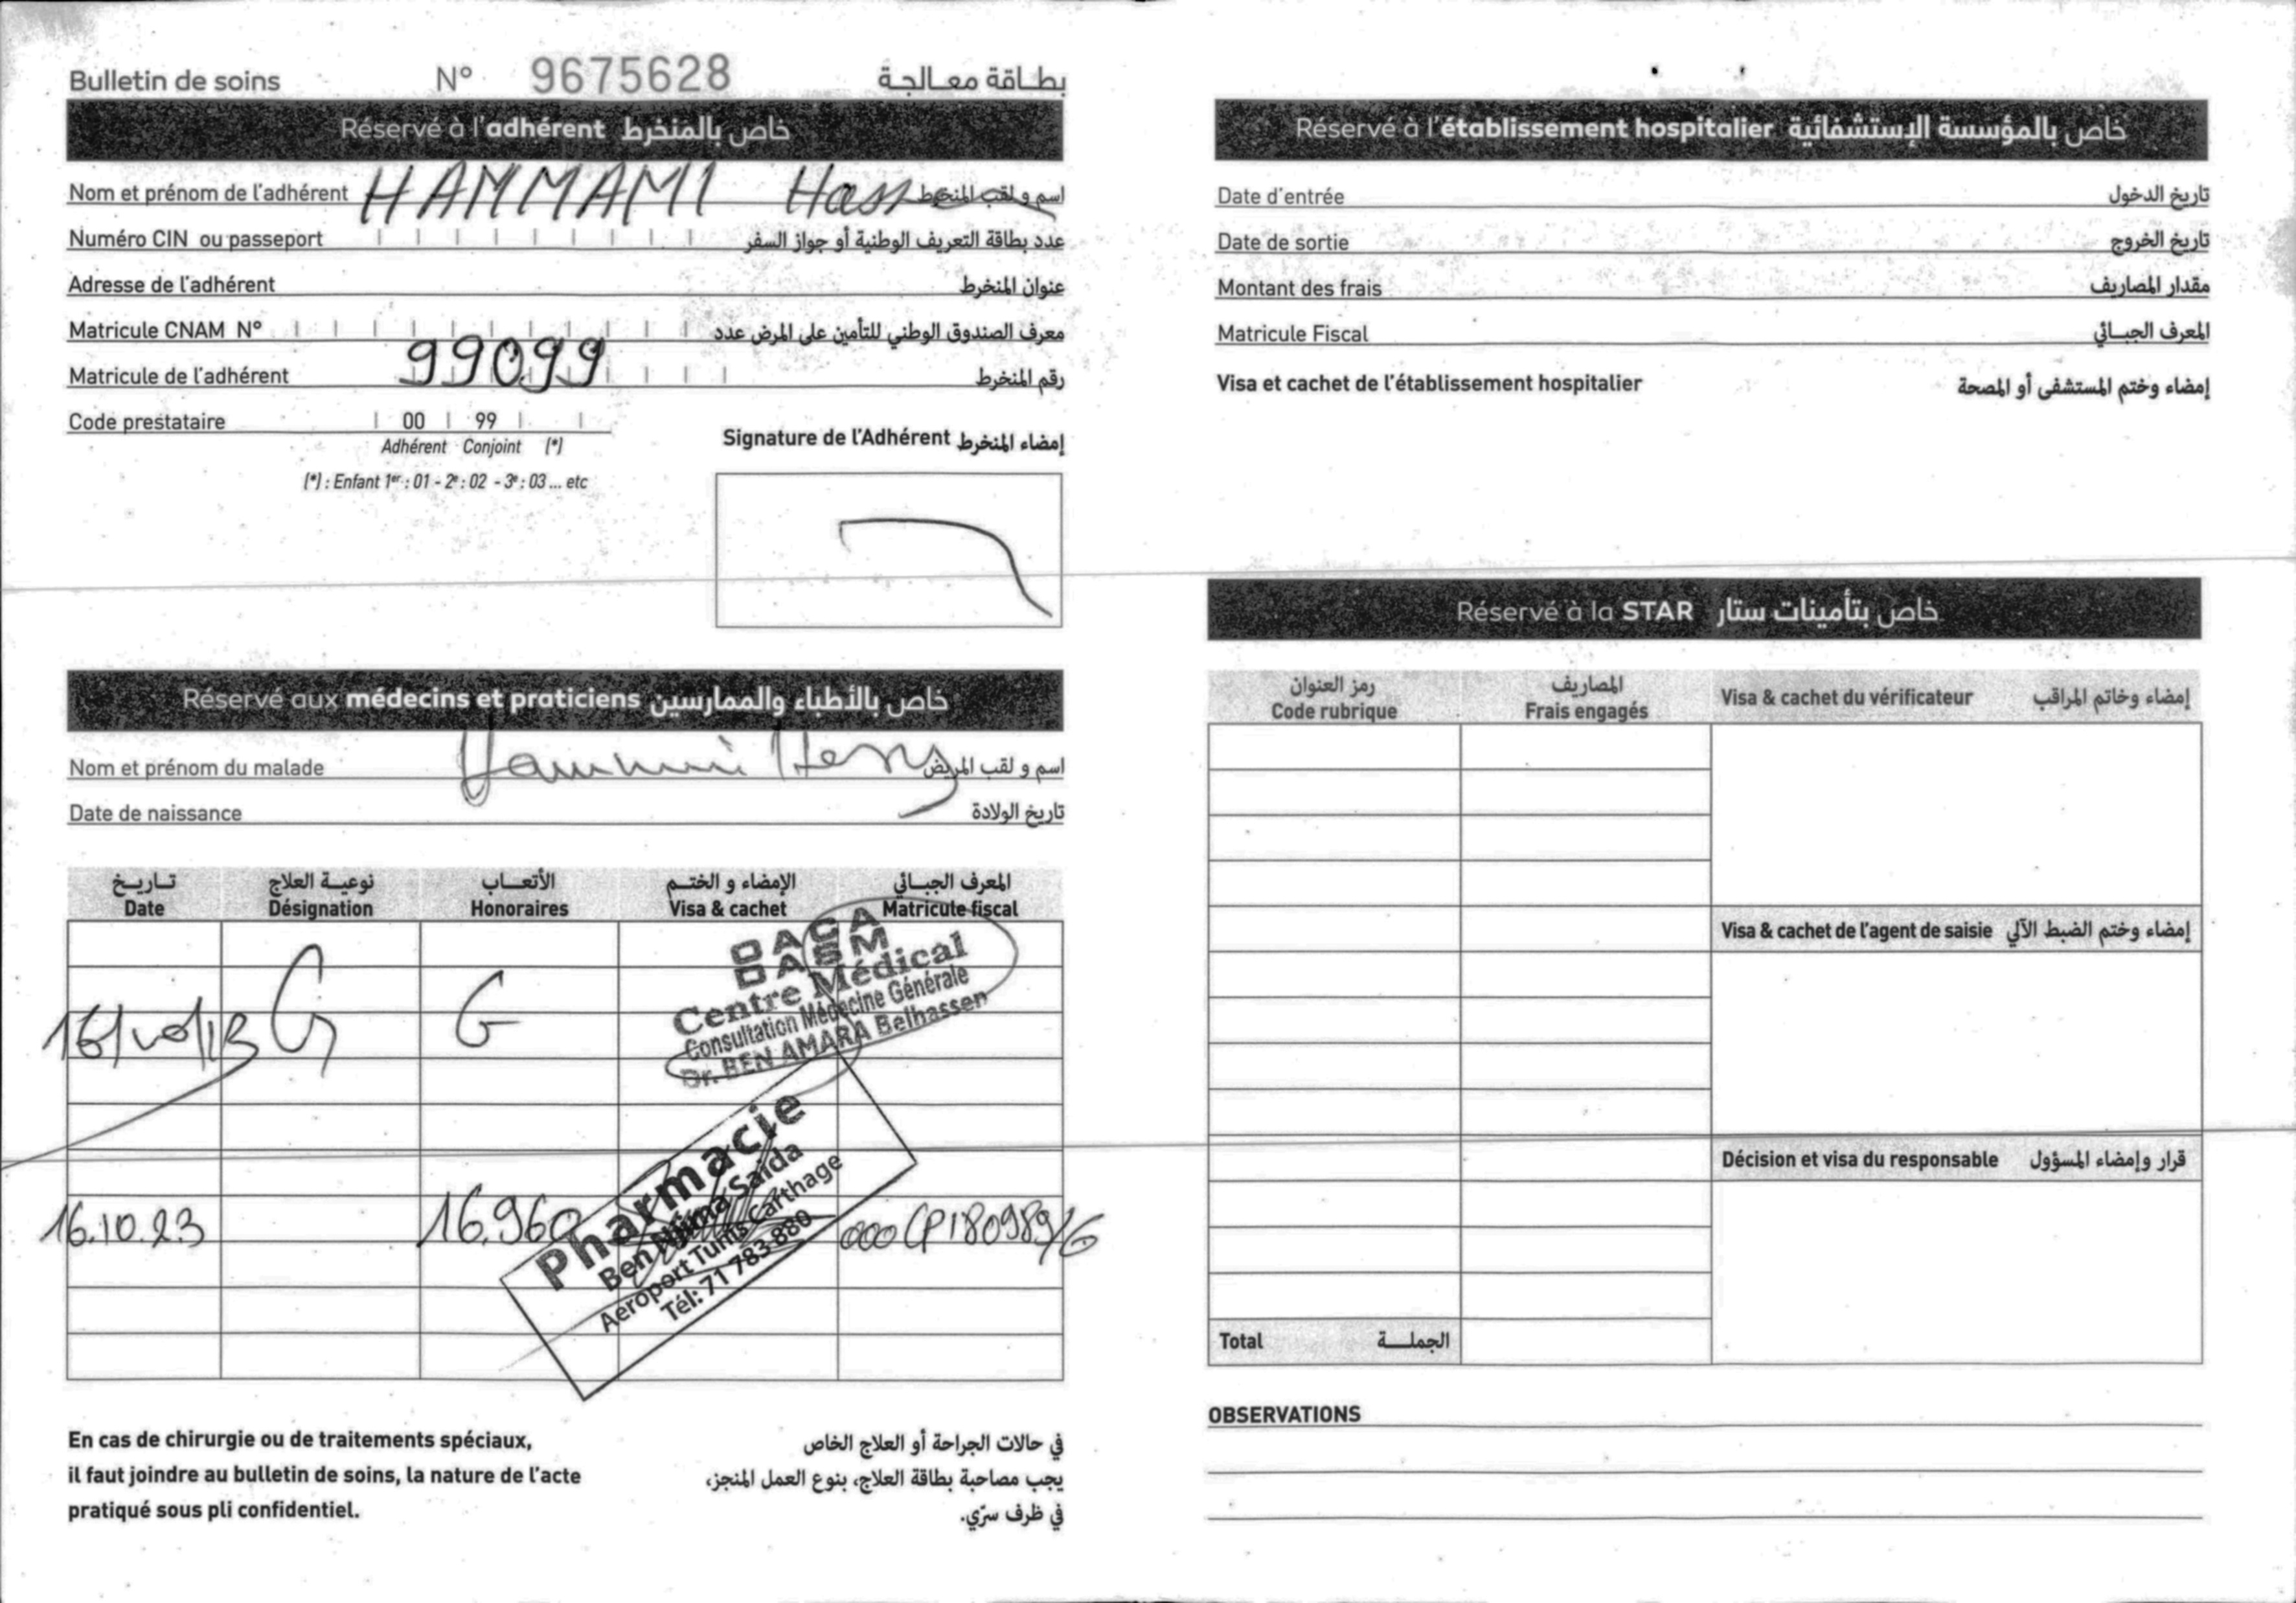 Bulletin de soins N° 9675628 بطاقة معالجة
Réservé à l'adhérent خاص بالمنخرط
Nom et prénom de l'adhérent HAMMAMI اسم و لقب المنخرط
Numéro CIN ou passeport عدد بطاقة التعريف الوطنية أو جواز السفر
Adresse de l'adhérent عنوان المنخرط
Matricule CNAM N° معرف الصندوق الوطني للتأمين على المرض عدد
Matricule de l'adhérent 99099 رقم المنخرط
Code prestataire 00 99
Adhérent Conjoint (*)
(*) : Enfant 1er : 01 - 2e : 02 - 3e : 03 ... etc
Signature de l'Adhérent إمضاء المنخرط
Réservé aux médecins et praticiens خاص بالأطباء والممارسين
Nom et prénom du malade اسم و لقب المريض
Date de naissance تاريخ الولادة
تاريخ نوعية العلاج الأتعاب الإمضاء و الختم المعرف الجبائي
Date Désignation Honoraires Visa & cachet Matricule fiscal
OACA
DASM
Centre Médical
Consultation Médecine Générale
Dr. BEN AMARA Belhassen
G
Pharmacie
Ben Saida
Aeroport Tunis Carthage
Tél: 71 783 880
16.10.23 16.960 000
En cas de chirurgie ou de traitements spéciaux,
il faut joindre au bulletin de soins, la nature de l'acte
pratiqué sous pli confidentiel.
في حالات الجراحة أو العلاج الخاص
يجب مصاحبة بطاقة العلاج، بنوع العمل المنجز،
في ظرف سرّي.
Réservé à l'établissement hospitalier خاص بالمؤسسة الإستشفائية
Date d'entrée تاريخ الدخول
Date de sortie تاريخ الخروج
Montant des frais مقدار المصاريف
Matricule Fiscal المعرف الجبائي
Visa et cachet de l'établissement hospitalier إمضاء وختم المستشفى أو المصحة
Réservé à la STAR خاص بتأمينات ستار
رمز العنوان المصاريف
Code rubrique Frais engagés
Visa & cachet du vérificateur إمضاء وخاتم المراقب
Visa & cachet de l'agent de saisie إمضاء وختم الضبط الآلي
Décision et visa du responsable قرار وإمضاء المسؤول
Total الجملة
OBSERVATIONS